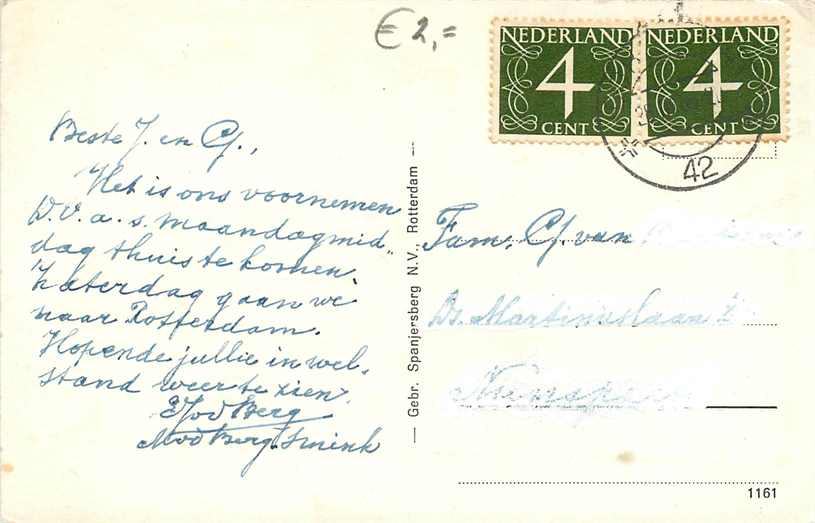 € 2,=
NEDERLAND
4
CENT
NEDERLAND
4
CENT
42
Beste J. en Cf.,
Het is ons voornemen
D.V. a.s. maandagmid„
dag thuis te komen,
Zaterdag gaan we
naar Rotterdam.
Hopende jullie in wel-
stand weer te zien,
v d Berg
v d Berg. Smink
— Gebr. Spanjersberg N.V., Rotterdam —
Fam. Cf. van
Ds. Martinuslaan
1161